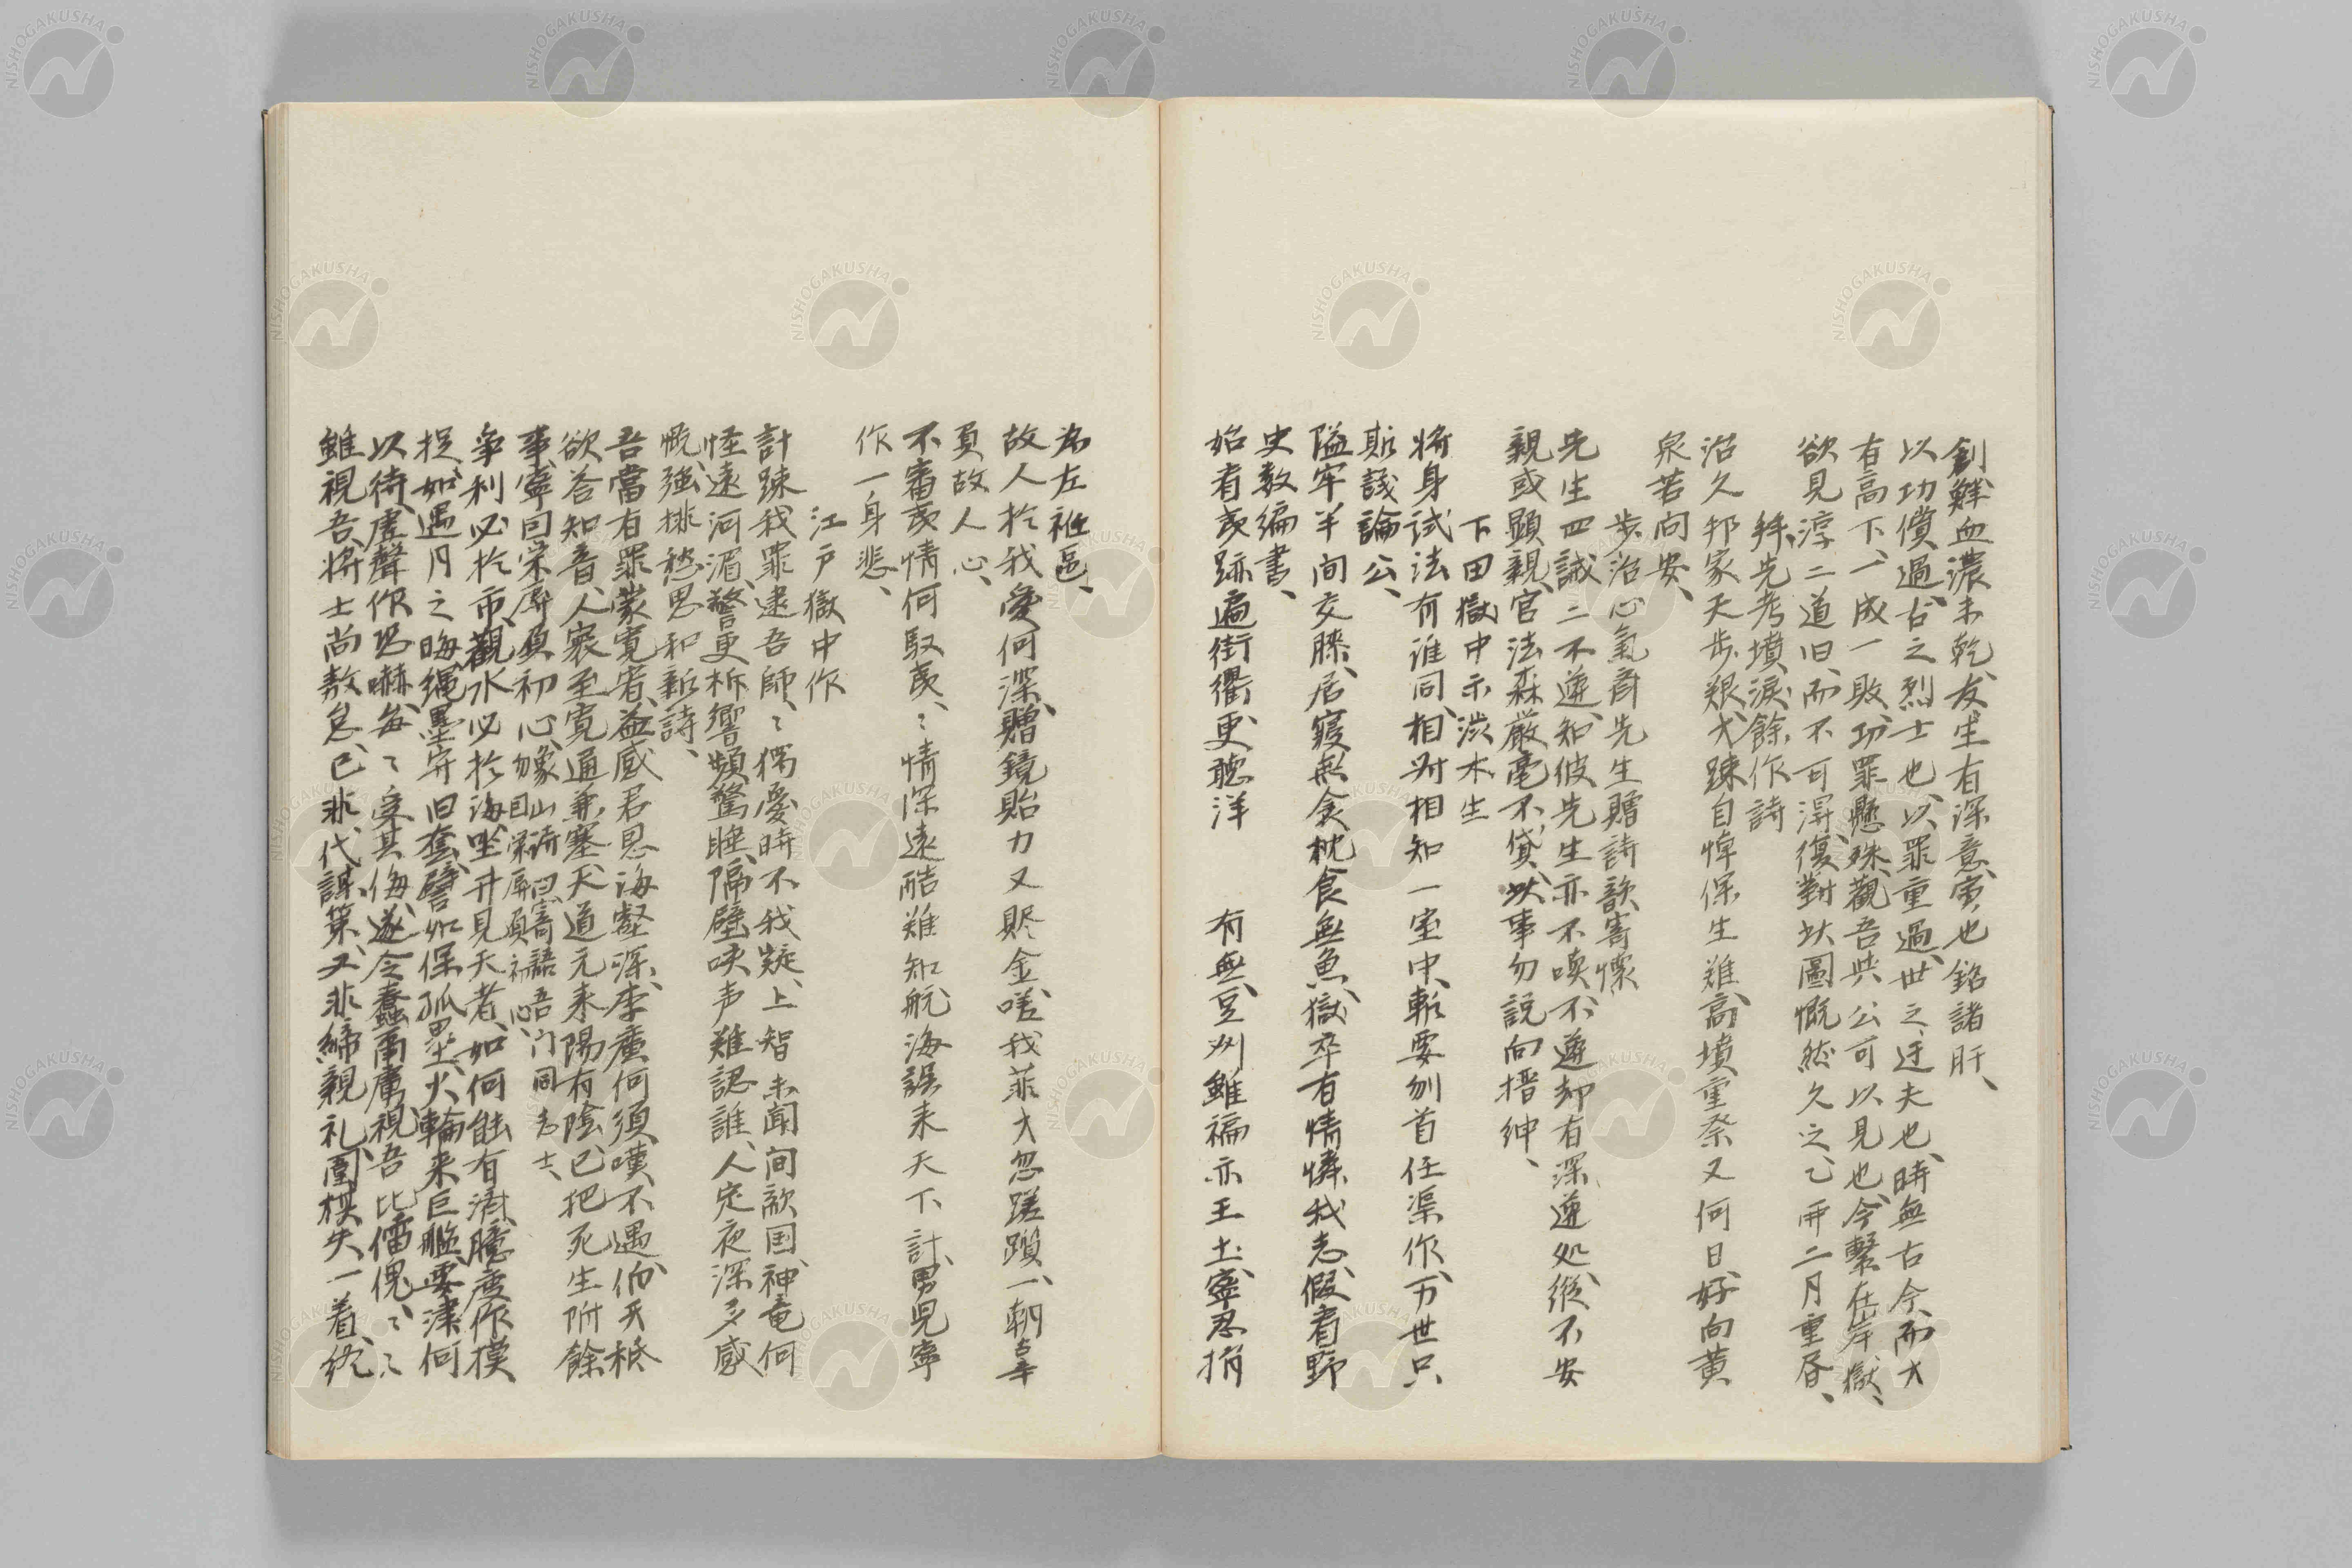 創、鮮血濃未乾、友生有深意、寅也銘諸肝、
以功償過、古之烈士也、以罪重過、世之迂夫也、時無古今、而才
有高下、一成一敗、功罪懸殊、觀吾与公可以見也、今繫在岸獄、
欲見淳二道旧、而不可得、復對此圖慨然久之、乙卯二月重昏、
拜先考墳、涙餘作詩
沿久邦家天歩艱、才疎自悼保生難、高墳重祭又何日、好向黄
泉若問安、
歩治心氣斎先生贈詩歌寄懐
先生四誡二不遵、知彼先生亦不嗔、不遵却有深遵処、縦不安
親或顕親、官法森厳毫不貸、此事勿説向搢紳、
下田獄中示渋木生
將身試法有誰同、相対相知一室中、斬要刎首任渠作、万世只
斯議論公、
隘牢半間交膝居、寝無衾枕食無魚、獄卒有情憐我志、假看野
史数編書、
始者夷跡遍街衢、更聴洋　有無、豆州雖褊亦王土、寧忍捐
為左袵區、
故人於我愛何深、贈鏡貽刀又賑金、嗟我菲才忽蹉躓、一朝辜
負故人心、
不審夷情何馭夷、〻情深遠酷難知、航海誤来天下計、男児寧
作一身悲、
江戸獄中作
計疎我罪逮吾師、〻猶愛時不我疑、上智未聞間敵国、神竜何
怪遠河湄、警更柝響頻驚睡、隔壁咲声難認誰、人定夜深多感
慨、強排愁思和新詩、
吾當有罪蒙寛宥、益感君恩海壑深、李廣何須嘆不遇、伯夭秪
欲答知音、人窮至寛通兼塞、天道元来陽有陰、已把死生附餘
事、寧回栄辱負初心、勿象山詩曰、寄語吾門同志士、
自栄辱負初心、
争利必於市、觀水必於海、坐井見天者、如何能有済、臆度作模
捉、如遇月之晦、縄墨守旧套、譬如保孤塁、火輪来巨艦、要津何
以待、虚聲作恐嚇、毎〻受其侮、遂令蠢爾虜、視吾比儡傀、〻〻
雖視吾、將士尚敖怠、已非代謀策、又非締親礼、圍棋失一着、終